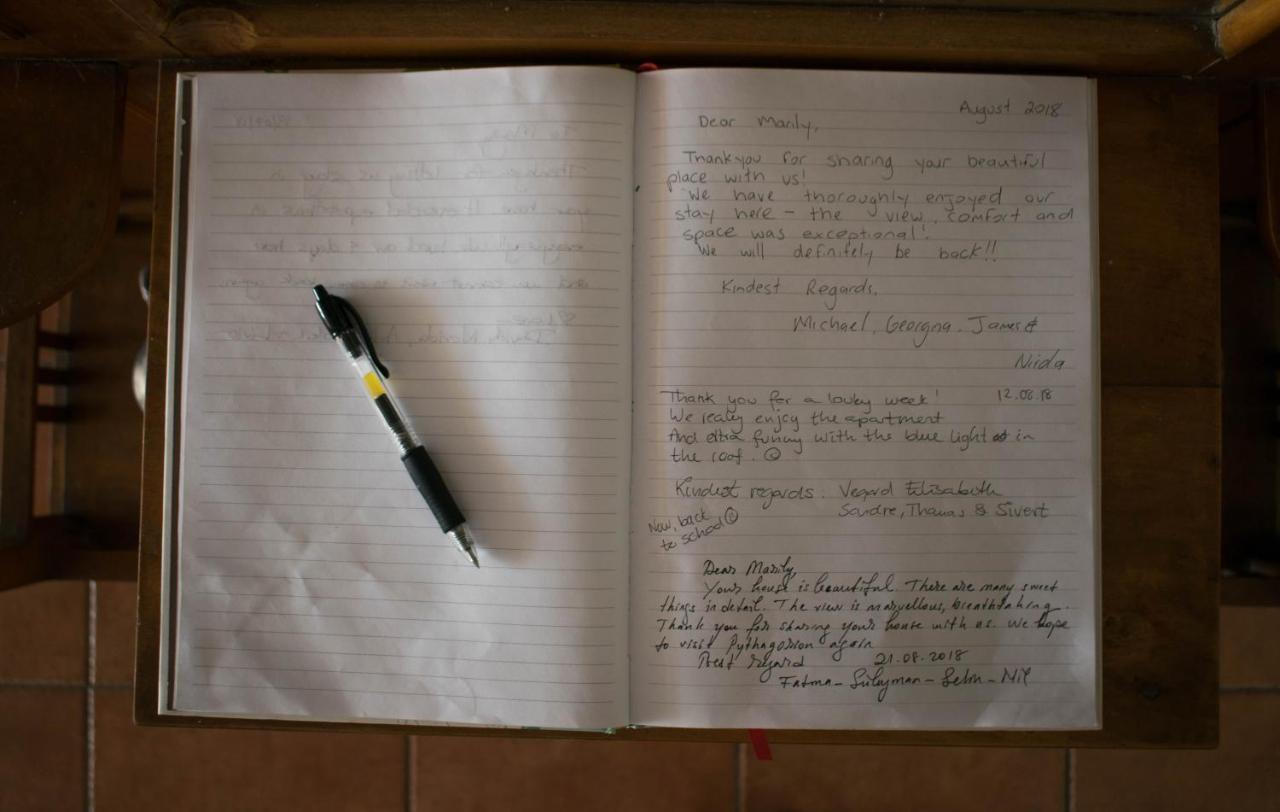 August 2018
Dear Marily,
Thankyou for sharing your beautiful
place with us!
We have thoroughly enjoyed our
stay here - the view, comfort and
space was exceptional!
We will definitely be back!!
Kindest Regards,
Michael, Georgina, James &
12.08.18
Thank you for a lovky week!
We realy enjoy the apartment
And extra funny with the blue light in
the roof. ☺
Kindest regards. Vegard Elisabeth
Sondre, Thomas & Sivert
Now, back
to school ☺
Dear Marily,
Your house is beautiful. There are many sweet
things in detail. The view is marvellous, breathtaking.
Thank you for sharing your house with us. We hope
to visit Pythagorion again
Best regard 21.08.2018
Fatma - Süleyman - Selin - Nil